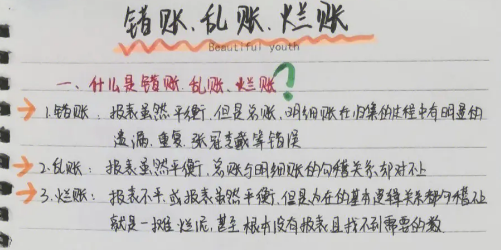 错账、乱账、烂账
Beautiful youth
一、什么是错账、乱账、烂账?
1.错账：报表虽然平衡，但是总账、明细账在归集的过程中有明显的
遗漏、重复、张冠李戴等错误
2.乱账：报表虽然平衡，总账与明细账的勾稽关系却对不上
3.烂账：报表不平，或报表虽然平衡，但是内在的基本逻辑关系都勾稽不上
就是一堆烂泥，甚至根本没有报表且找不到需要的数